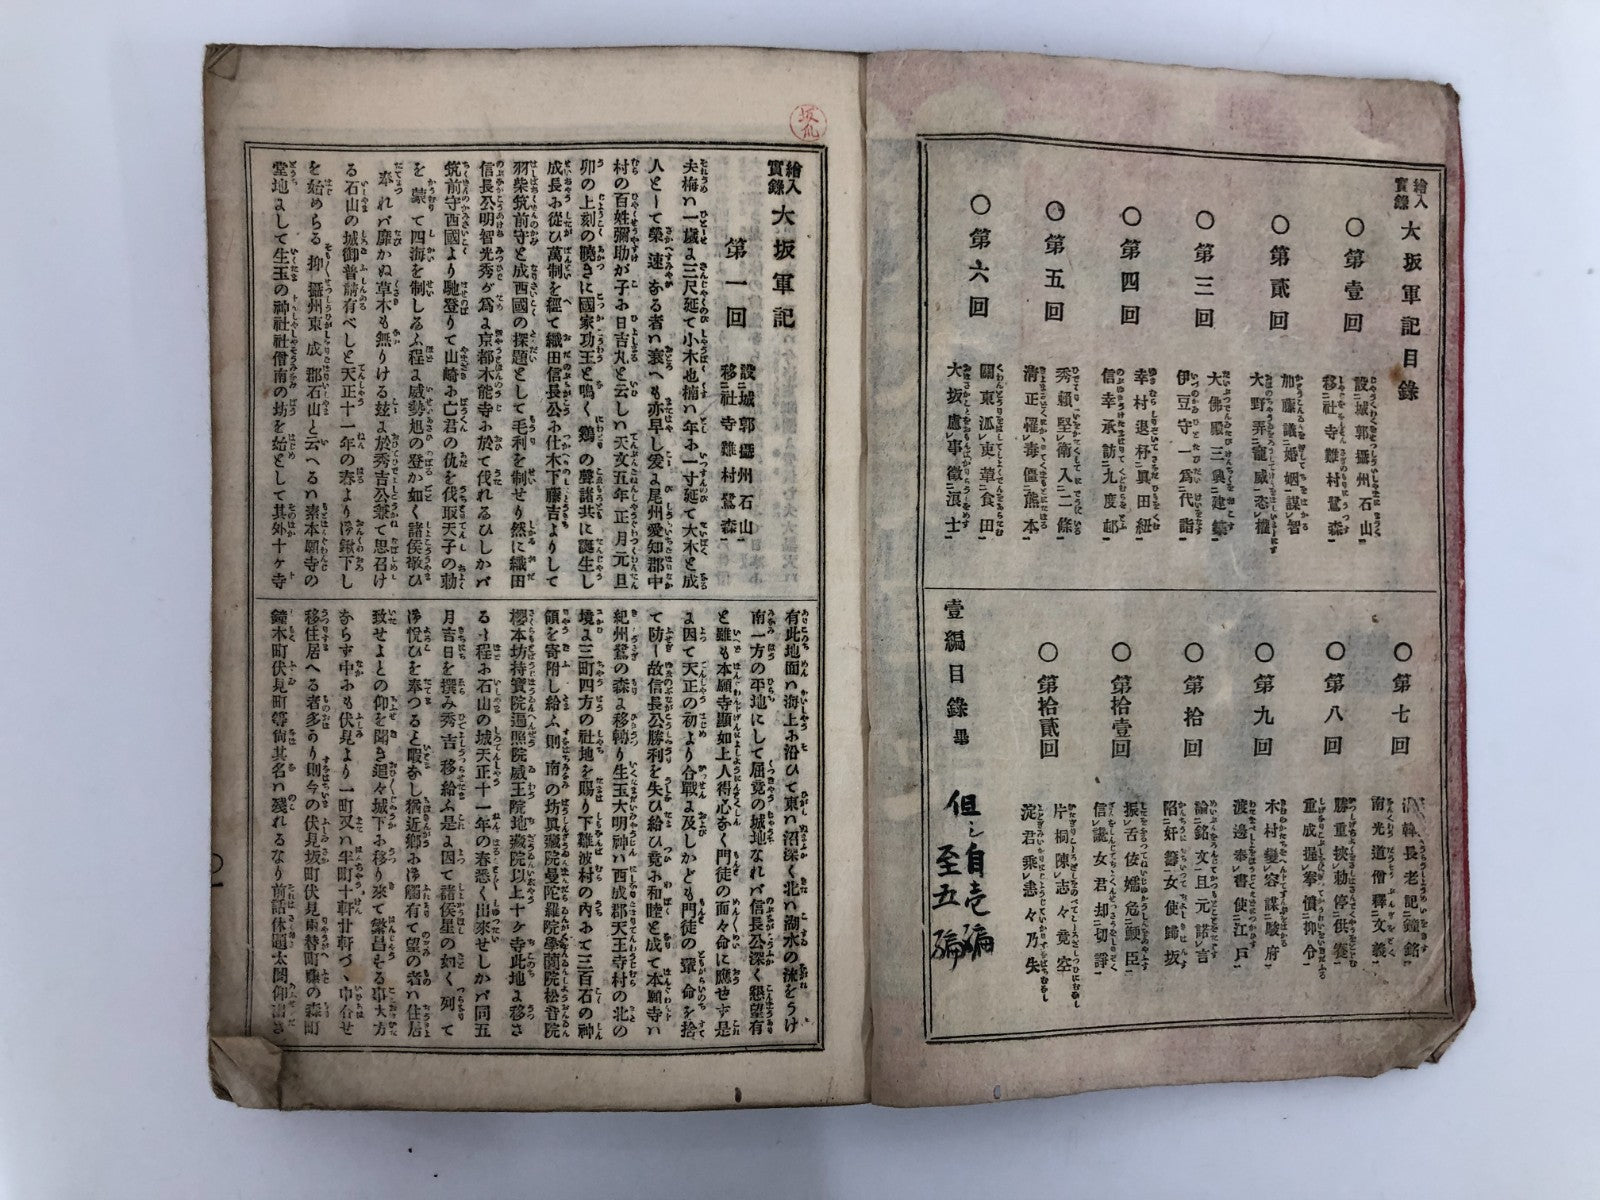 繪入實錄 大坂軍記目錄
○第壹回 設城郭攝州石山 移社寺難村鷺森
○第貳回 加藤議婚姻謀智 大野弄寵威恣權
○第三回 大佛殿三興建築 伊豆守一爲代詣
○第四回 幸村退杯眞田紐 信幸承訪九度邨
○第五回 秀賴堅衛入二條 淸正罹毒僵熊本
○第六回 關東派束葦食田 大坂慮事徴浪士
○第七回 韓長老記鐘銘 南光道僧釋文義
○第八回 勝重挾勅停供養 重成握拳憤抑令
○第九回 木村變容謀駿府 渡邊奉書使江戸
○第拾回 論銘文且元諾言 陷奸籌女使歸坂
○第拾壹回 振舌伎嚅危皷臣 信讒女君却切諍
○第拾貳回 片桐陳志々竟空 淀君乘恚々乃失
壹編目錄畢
但シ自壱編
至五編
繪入實錄 大坂軍記
第一回 設城郭攝州石山 移社寺難村鷺森
夫梅ハ一歲よ三尺延て小木也楠ハ年お一寸延て大木と成
人として榮速なる者ハ衰へも亦早し爰よ尾州愛知郡中
村の百姓彌助が子お日吉丸と云しハ天文五年正月元旦
卯の上刻の曉きに國家功王と鳴く鷄の聲諸共に誕生し
成長お從ひ萬制を經て織田信長公お仕木下藤吉よりして
羽柴筑前守と成西國の探題として毛利を制せり然に織田
信長公明智光秀が爲よ京都本能寺お於て伐れるひしかバ
筑前守西國より馳登りて山崎お亡君の仇を伐取天子の勅
を蒙て四海を制しるふ程よ威勢旭の登か如く諸侯敬ひ
奉れバ靡かぬ草木も無りける玆よ於秀吉公兼て思召け
る石山の城御普請有べしと天正十一年の春より御鍬下し
を始めらる抑攝州東成郡石山と云へるハ素本願寺の
堂地よして生玉の神社社僧南の坊を始として其外十ケ寺
有此地面ハ海上お沿ひて東ハ沼深く北ハ湖水の流をうけ
南一方の平地にして屈竟の城地なれバ信長公深く懇望有
と雖も本願寺顯如上人得心なく門徒の面々命に應せす是
よ因て天正の初より合戰よ及しかども門徒の輩命を捨
て防し故信長公勝利を失ひ給ひ竟お和睦と成て本願寺ハ
紀州鷺の森よ移轉り生玉大明神ハ西成郡天王寺村の北の
境よ三町四方の社地を賜り下難波村の内おて三百石の神
領を寄附し給ふ則南の坊眞藏院曼陀羅院學蘭院松音院
櫻本坊持寶院遍照院威王院地藏院以上十ケ寺此地よ移さ
る程お石山の城天正十一年の春悉く出來せしかバ同五
月吉日を撰み秀吉移給ふ是よ因て諸侯星の如く列て
御悅ひを奉つると暇なし猶近鄕お御觸有て望の者ハ住居
致せよとの仰を聞き追々城下お移り來て繁昌せる事大方
ならす中おも伏見より一町又ハ半町十軒廿軒づゝ申合せ
移住居へる者多かり則今の伏見坂町伏見兩替町藤の森町
鐘木町伏見町等尙其名ハ殘れるなり前話休題太閤仰出さ